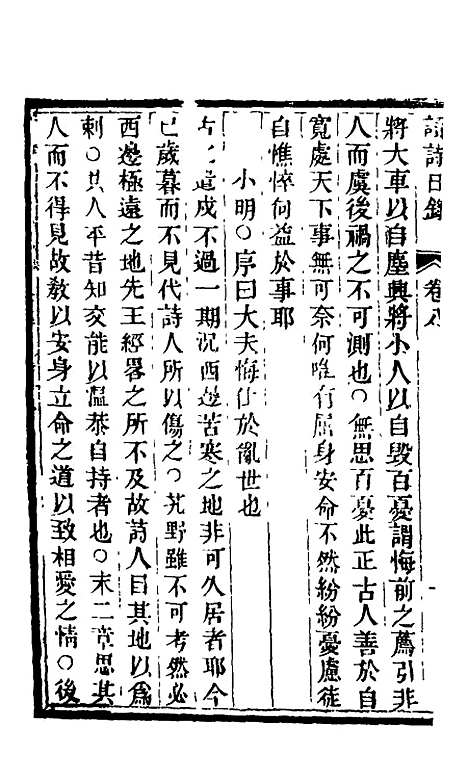 讀詩日錄 卷八
將大車以自塵興將小人以自毀百憂謂悔前之薦引非
人而虞後禍之不可測也○無思百憂此正古人善於自
寬處天下事無可奈何唯有屈身安命不然紛紛憂慮徒
自憔悴何益於事耶
小明○序曰大夫悔仕於亂世也
古之遣戍不過一期況西邊苦寒之地非可久居者耶今
已歲暮而不見代詩人所以傷之○艽野雖不可考然必
西邊極遠之地先王經畧之所不及故詩人目其地以爲
刺○共人平昔知交能以溫恭自持者也○末二章思其
人而不得見故敎以安身立命之道以致相愛之情○後